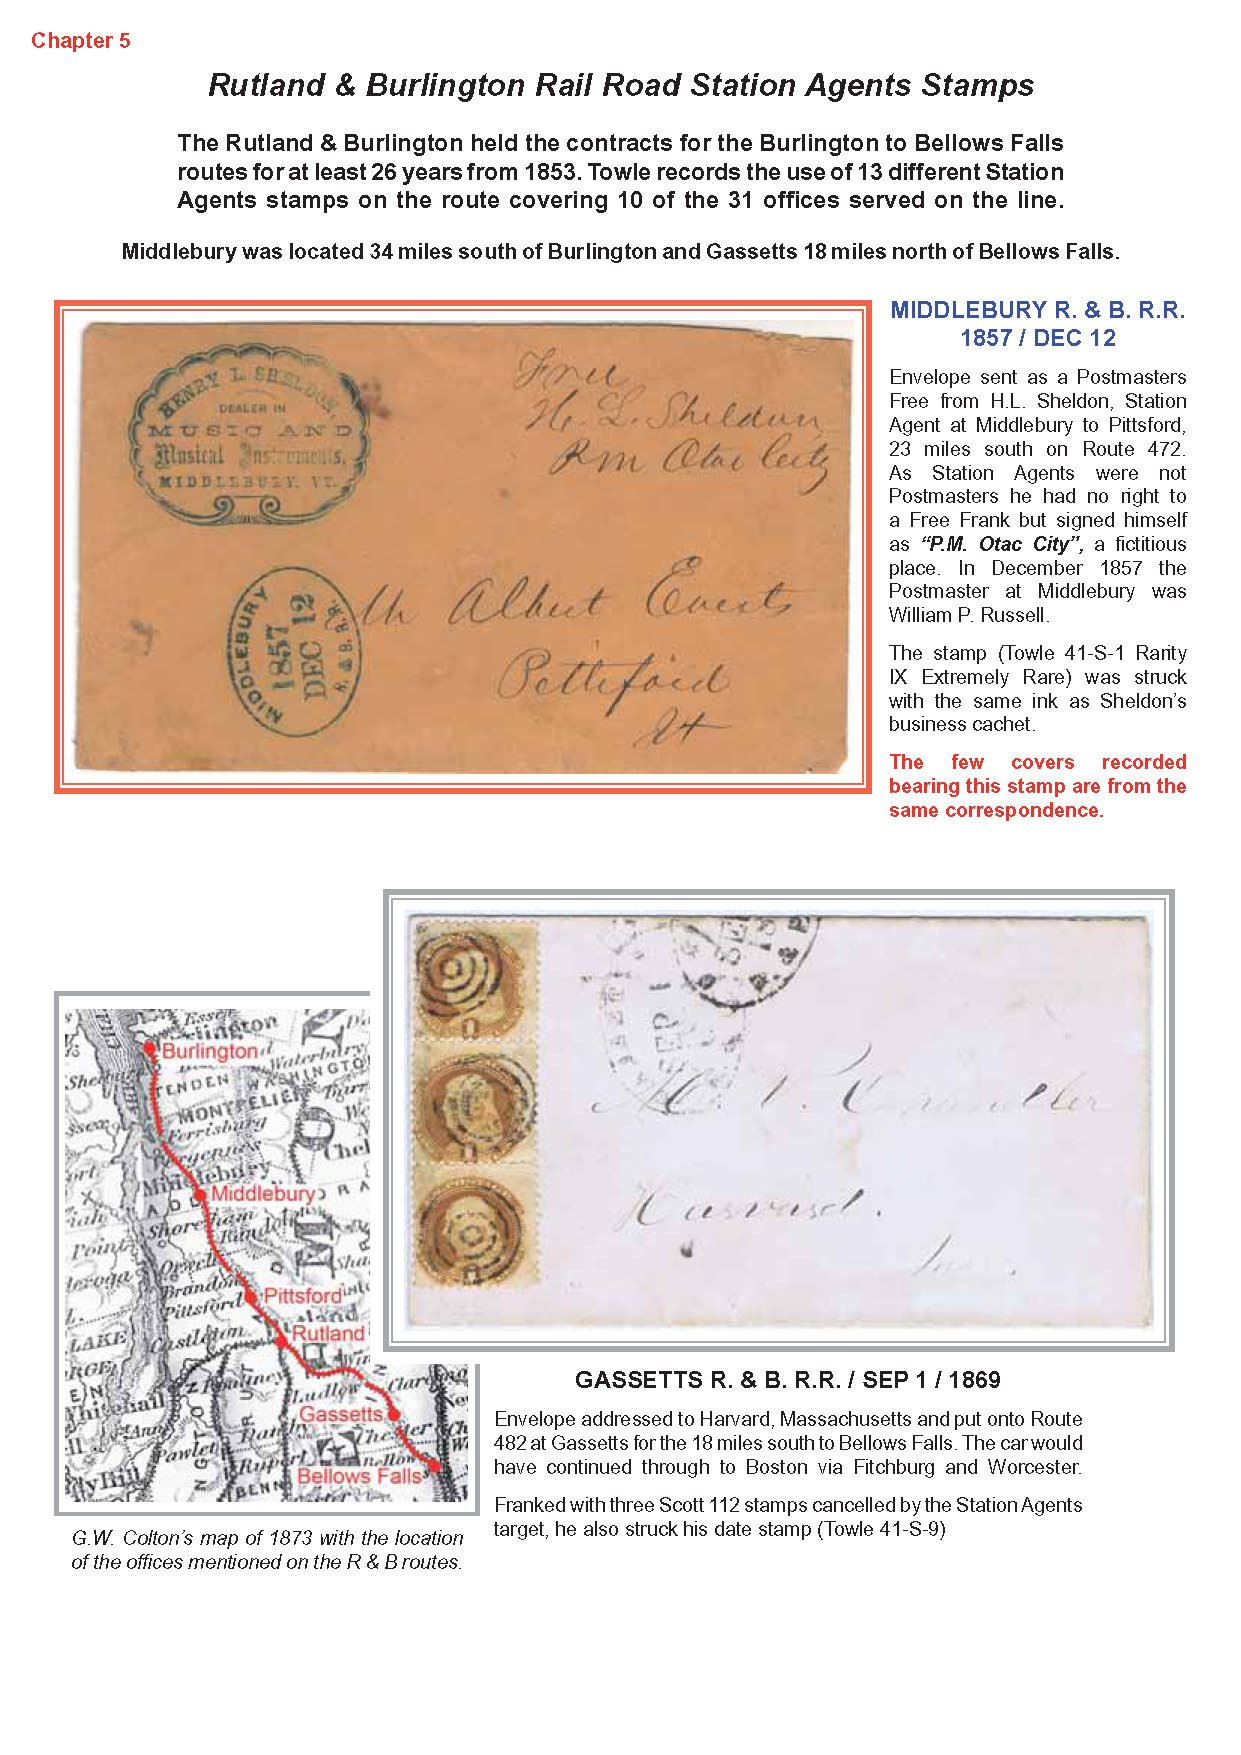 Chapter 5
Rutland & Burlington Rail Road Station Agents Stamps
The Rutland & Burlington held the contracts for the Burlington to Bellows Falls
routes for at least 26 years from 1853. Towle records the use of 13 different Station
Agents stamps on the route covering 10 of the 31 offices served on the line.
Middlebury was located 34 miles south of Burlington and Gassetts 18 miles north of Bellows Falls.
HENRY L. SHELDON,
DEALER IN
MUSIC AND
Musical Instruments,
MIDDLEBURY, VT.
Free
H. L. Sheldon
P.m Otac City
MIDDLEBURY
1857
DEC 12
R. & B. R.R.
Mr Albert Everts
Pittsford
Vt
MIDDLEBURY R. & B. R.R.
1857 / DEC 12
Envelope sent as a Postmasters
Free from H.L. Sheldon, Station
Agent at Middlebury to Pittsford,
23 miles south on Route 472.
As Station Agents were not
Postmasters he had no right to
a Free Frank but signed himself
as “P.M. Otac City”, a fictitious
place. In December 1857 the
Postmaster at Middlebury was
William P. Russell.
The stamp (Towle 41-S-1 Rarity
IX Extremely Rare) was struck
with the same ink as Sheldon’s
business cachet.
The few covers recorded
bearing this stamp are from the
same correspondence.
SEP 1
Harvard.
Burlington
Waterbury
MONTPELIER
Ferrisburg
Middlebury
Middlebury
Shoreham
Orwell
Brandon
Pittsford
Pittsford
Castleton
Rutland
Ludlow
Whitehall
Pawlet
Gassetts
Chester
Rupert
Bellows Falls
BENN
G.W. Colton’s map of 1873 with the location
of the offices mentioned on the R & B routes.
GASSETTS R. & B. R.R. / SEP 1 / 1869
Envelope addressed to Harvard, Massachusetts and put onto Route
482 at Gassetts for the 18 miles south to Bellows Falls. The car would
have continued through to Boston via Fitchburg and Worcester.
Franked with three Scott 112 stamps cancelled by the Station Agents
target, he also struck his date stamp (Towle 41-S-9)